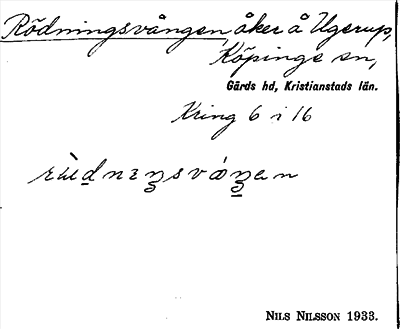 Rödningsvången, åker å Ugerup,
Köpinge sn,
Gärds hd, Kristianstads län.
Kring 6 i 16
NILS NILSSON 1933.